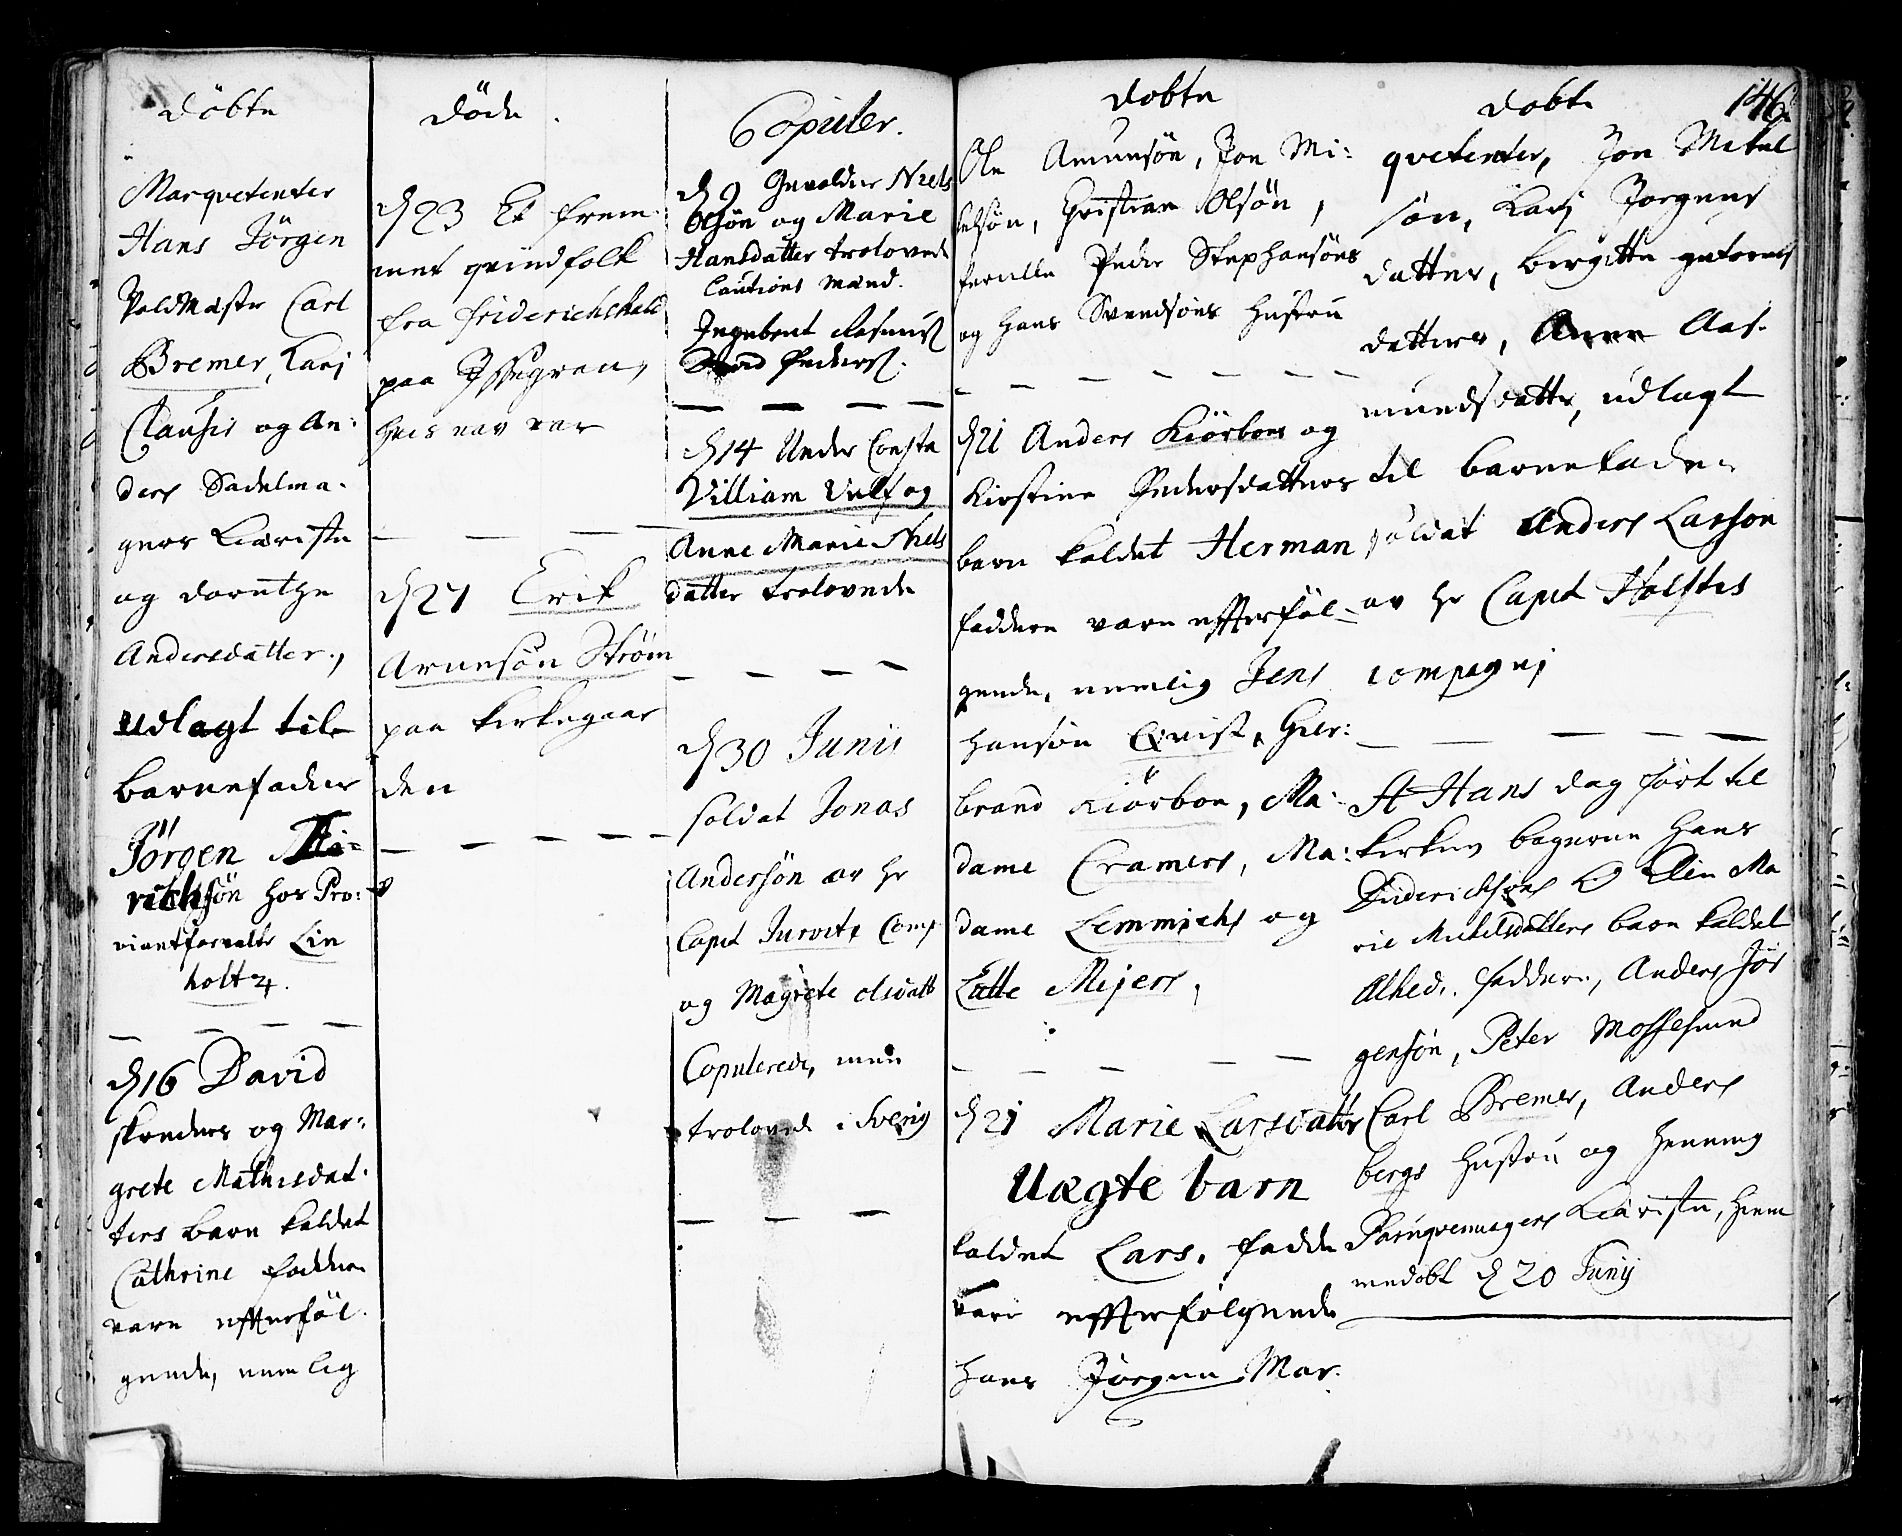 döbte
Marqvetenter
Hans Jörgen
VoldMester Carl
Bremer, Karj
Clausis og An:
ders Sadelma-
gers Kiæriste
og dorethe
Andersdatter.,
udlagt til
barnefader
Jörgen
richsön hos Pro:
viantforvalter Lin
holt.
d 16 David
skreders og Mar:
grete Mathisdat-
ters barn kaldet
Cathrine faddere
vare effterföl-
gende, nemlig
döde.
d 23 Et frem-
met qvindfolk
fra friderichshald
paa Issegran,
hvis nav var
d 27 Erik
Arnesön Ström
paa kirkegaar
den
Copuler.
d 9 Niels
Olsön og Marie
Hansdatter trolovede
Cautions mænd.
Ingebret Rasmus
Peders
d 14 Under Consta
Villiam Vulf og
Anne Marie Niels
datter trolovede
d 30 Junii
soldat Jonas
Andersön av hr
Capit Comp
og Magrete olsdatt
Copulerede, men
trolovede i Sverig
döbte
Ole Amunsön, Jon Mi:
kelsön, Christian Olsön,
Peder Stephansöns
og Hans Svendsöns Hustru
d 21 Anders Kiörboes og
Kirstine Pedersdatters
barn kaldet Herman
faddere vare effterföl-
gende, nemlig Jens
Hansön Qvist, Gur:
brand Kiörboe, Ma-
dame Cramers, Ma:
dame Lemmichs og
Latte Mejers,
d 21 Marie Larsdatters
Uægte barn
kaldet Lars. fadde
vare effterfölgende
Hans Jörgen Mar-
döbte
146
qvetenter, Jon Mikel
sön, Karj Jorgens
datter, birgitte gutorms
datters, Anne Aas-
mundsdatter, udlagt
til barnefader
soldat Anders Larson
av hr Capit Holstes
compagnj
St Hans dag fört til
kirken bagerne Hans
Diderichsens og Elin Ma
rie Mickelsdatters barn kaldet
Alhed. faddere, Anders Jör
gensön, Peter Mossesund
Carl Bremer, Anders
bergs Hustru og Henning
Paruqvemagers Kiæriste, hiem
medöbt d 20 Junij